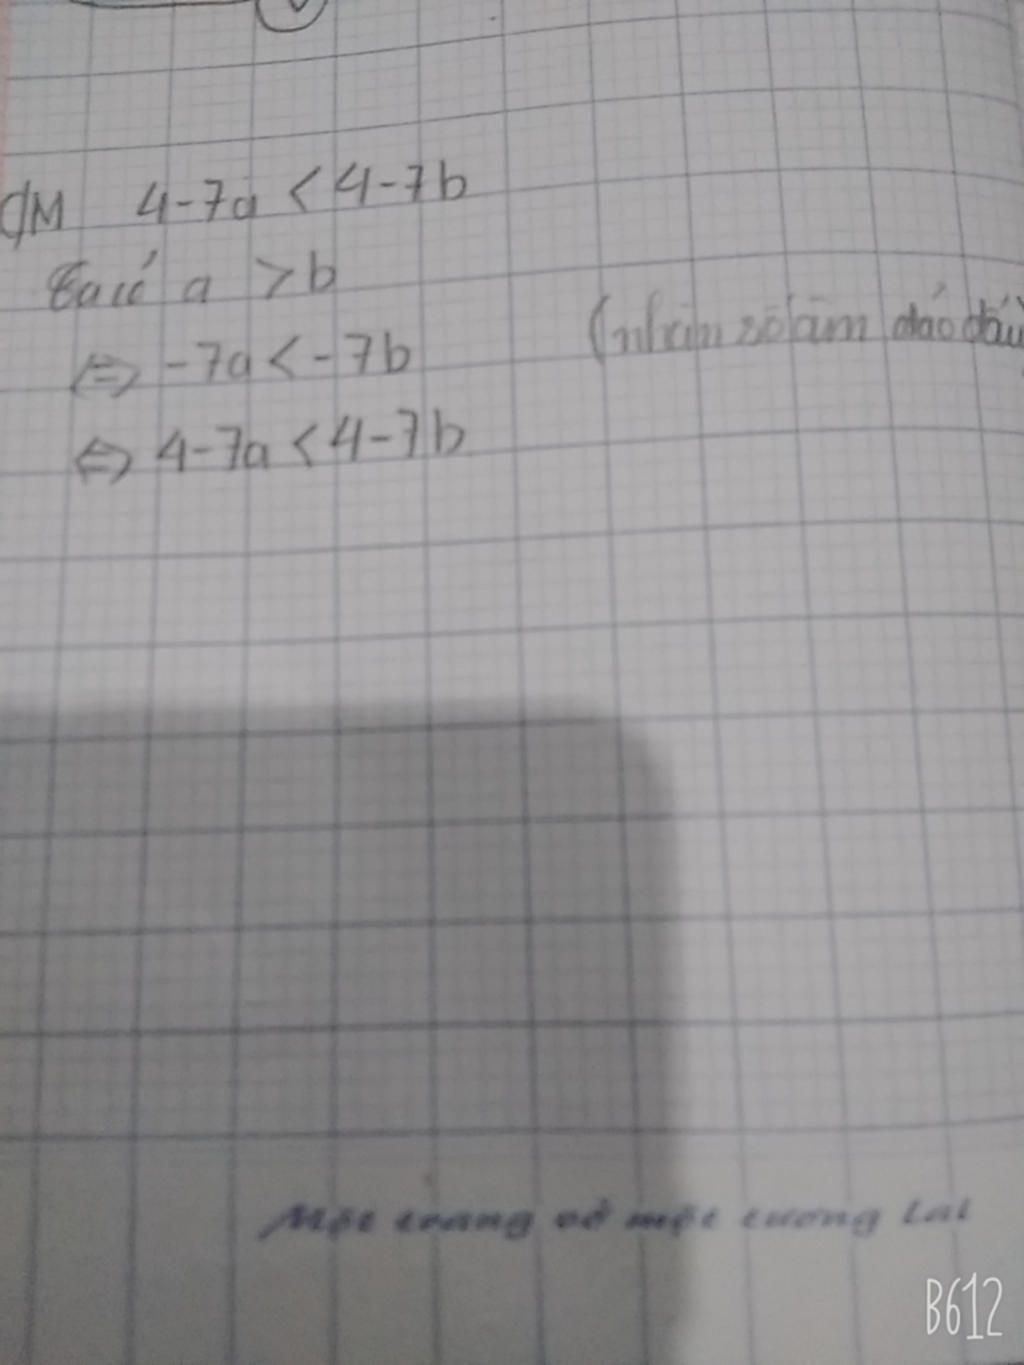 CM 4-7a < 4-7b
Ta có a > b
⇔ -7a < -7b (nhân số âm đảo dấu)
⇔ 4-7a < 4-7b
Một trang vở một tương lai
B612